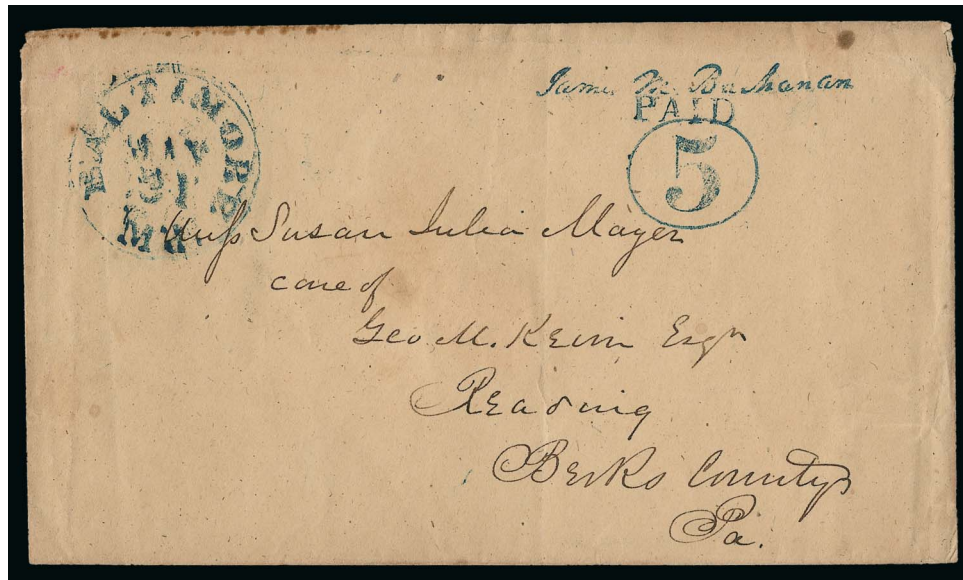 BALTIMORE
MAY
31
Md.
James M. Buchanan
PAID
5
Miss Susan Julia Mayer
care of
Geo M. Keim Esqr
Reading
Berks County
Pa.